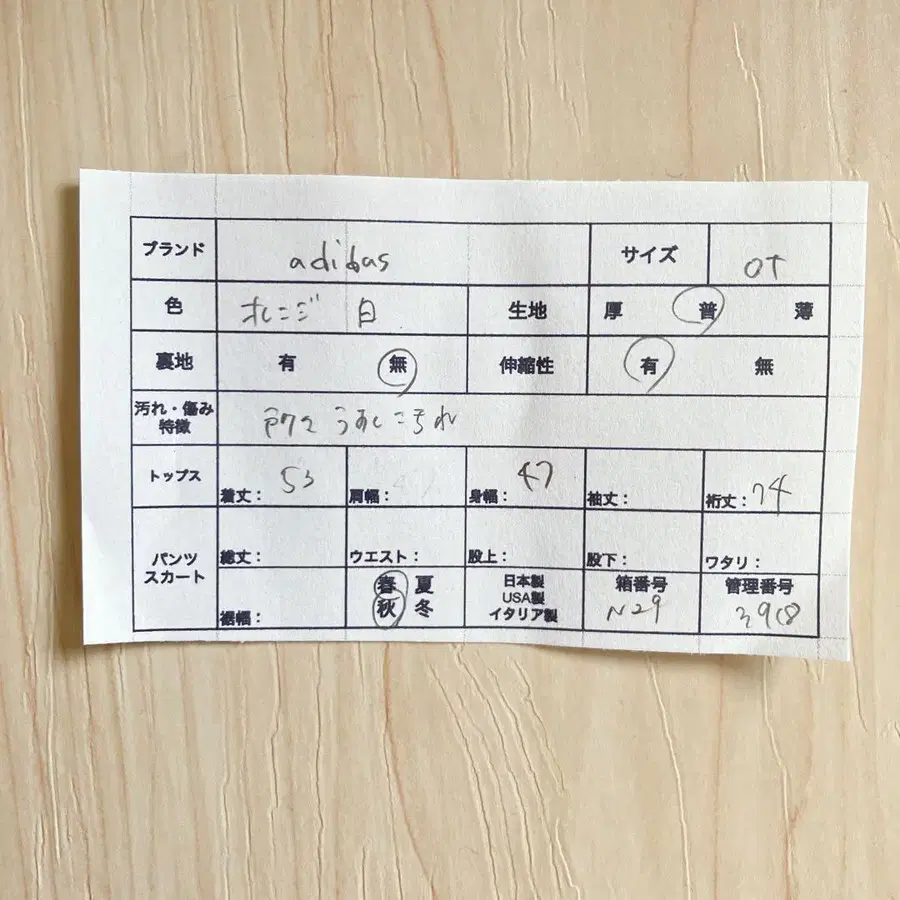 ブランド adidas サイズ OT
色 オレンジ 白 生地 厚 普 薄
裏地 有 無 伸縮性 有 無
汚れ・傷み
特徴 所々うすい汚れ
トップス 着丈: 53 肩幅: 身幅: 47 袖丈: 裄丈: 74
パンツ
スカート 総丈: ウエスト: 股上: 股下: ワタリ:
裾幅: 春 夏
秋 冬
日本製
USA製
イタリア製
箱番号
N29
管理番号